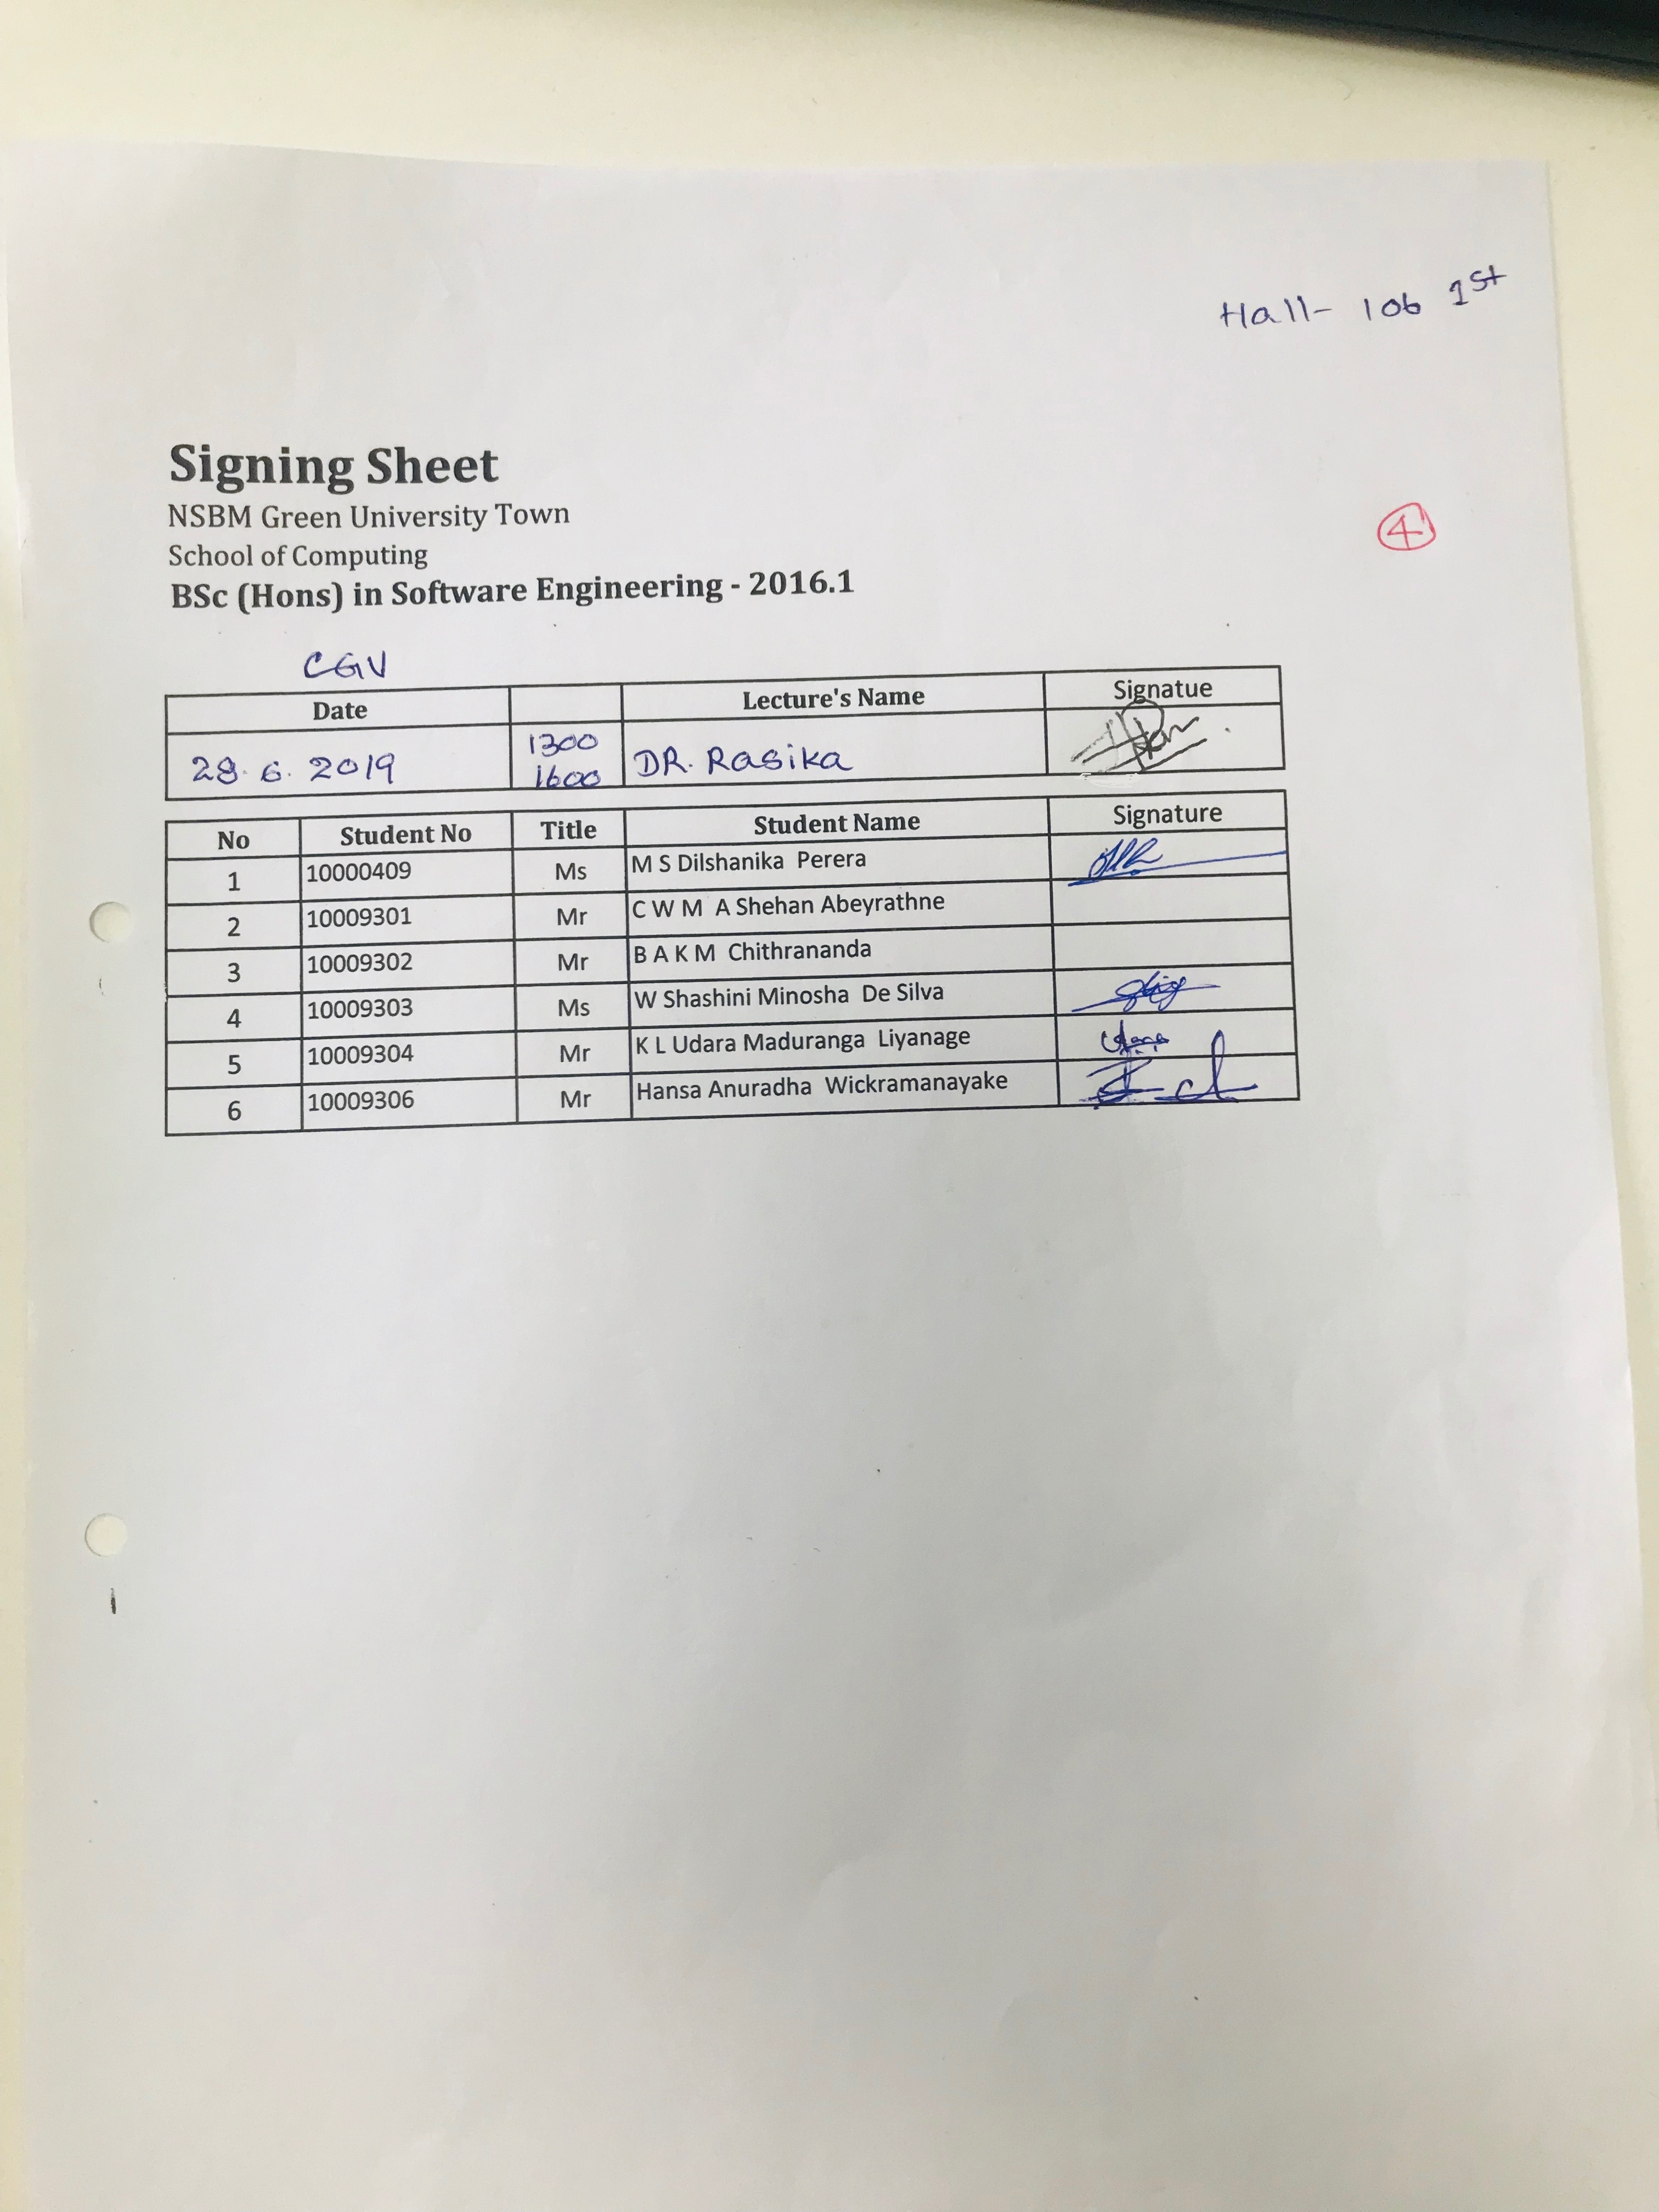 Hall- 106 1st
Signing Sheet
NSBM Green University Town
4
School of Computing
BSc (Hons) in Software Engineering - 2016.1
CGV
Date Lecture's Name Signatue
28.6.2019 1300 1600 DR. Rasika
No Student No Title Student Name Signature
1 10000409 Ms M S Dilshanika Perera
2 10009301 Mr C W M A Shehan Abeyrathne
3 10009302 Mr B A K M Chithrananda
4 10009303 Ms W Shashini Minosha De Silva
5 10009304 Mr K L Udara Maduranga Liyanage
6 10009306 Mr Hansa Anuradha Wickramanayake